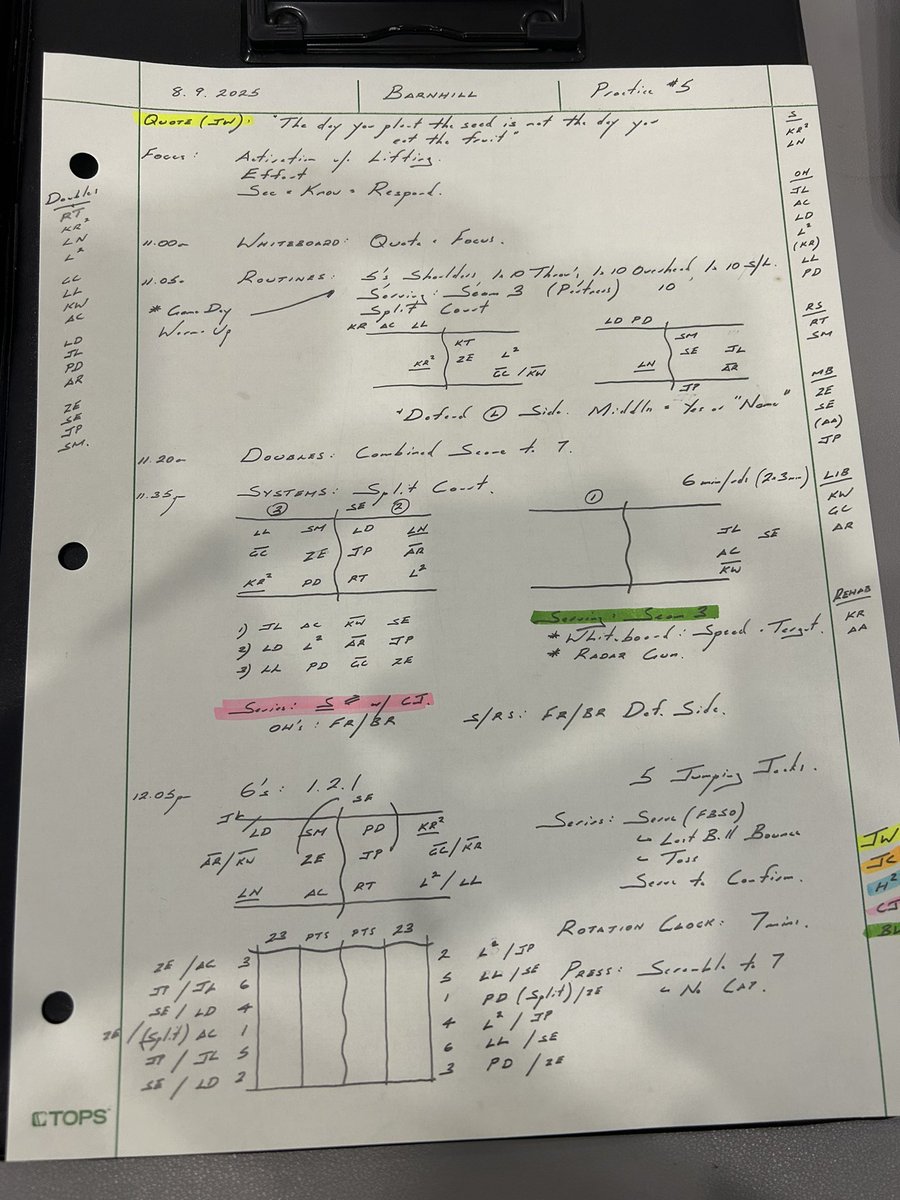 8.9.2025 BARNHILL Practice #5
QUOTE (JW): "The day you plant the seed is not the day you
eat the fruit"
Focus: Activation w/ Lifting.
Effort
See = Know = Respond.
Doubles
RT
KR²
LN
L²
GC
LL
KW
AC
LD
JL
PD
AR
ZE
SE
JP
SM.
S
KR²
LN
OH
JL
AC
LD
L²
(KR)
LL
PD
RS
RT
SM
MB
ZE
SE
(AA)
JP
LIB
KW
GC
AR
REHAB
KR
AA
11.00a WHITEBOARD: Quote + Focus.
11.05a ROUTINES: 5's Shoulders, 1x10 Throws, 1x10 Overhead, 1x10 S/L.
* Game Day
Warm Up
Serving: Seam 3 (Partners) 10
Split Court
KR AC LL
KT
KR² ZE L²
GC / KW
LD PD
SM
SE JL
LN AR
JP
* Defend L Side. Middle = Yes or "Name"
11.20a DOUBLES: Combined Score to 7.
11.35a SYSTEMS: Split Court. 6 min/rds (2x3min)
3 SE 2
LL SM LD LN
GC ZE JP AR
KR² PD RT L²
1
JL SE
AC
KW
1) JL AC KW SE
2) LD L² AR JP
3) LL PD GC ZE
Serving: Seam 3
* Whiteboard: Speed + Target.
* RADAR Gun.
Series: S # w/ CJ.
OH's: FR/BR S/RS: FR/BR Def. Side.
12.05pm 6's: 1.2.1 5 Jumping Jacks.
SE
JL/LD SM PD KR²
AR/KW ZE JP GC/KR
LN AC RT L²/LL
Series: Serve (FBSO)
↳ Lost Ball Bounce
↳ Toss
Serve to Confirm.
ROTATION CLOCK: 7mins.
PRESS: Scramble to 7
↳ No CAP.
23 PTS PTS 23
ZE / AC 3 2 L² / JP
JP / JL 6 5 LL / SE
SE / LD 4 1 PD (Split) / ZE
ZE / (Split) AC 1 4 L² / JP
JP / JL 5 6 LL / SE
SE / LD 2 3 PD / ZE
JW
JC
H²
CJ
BL
TOPS